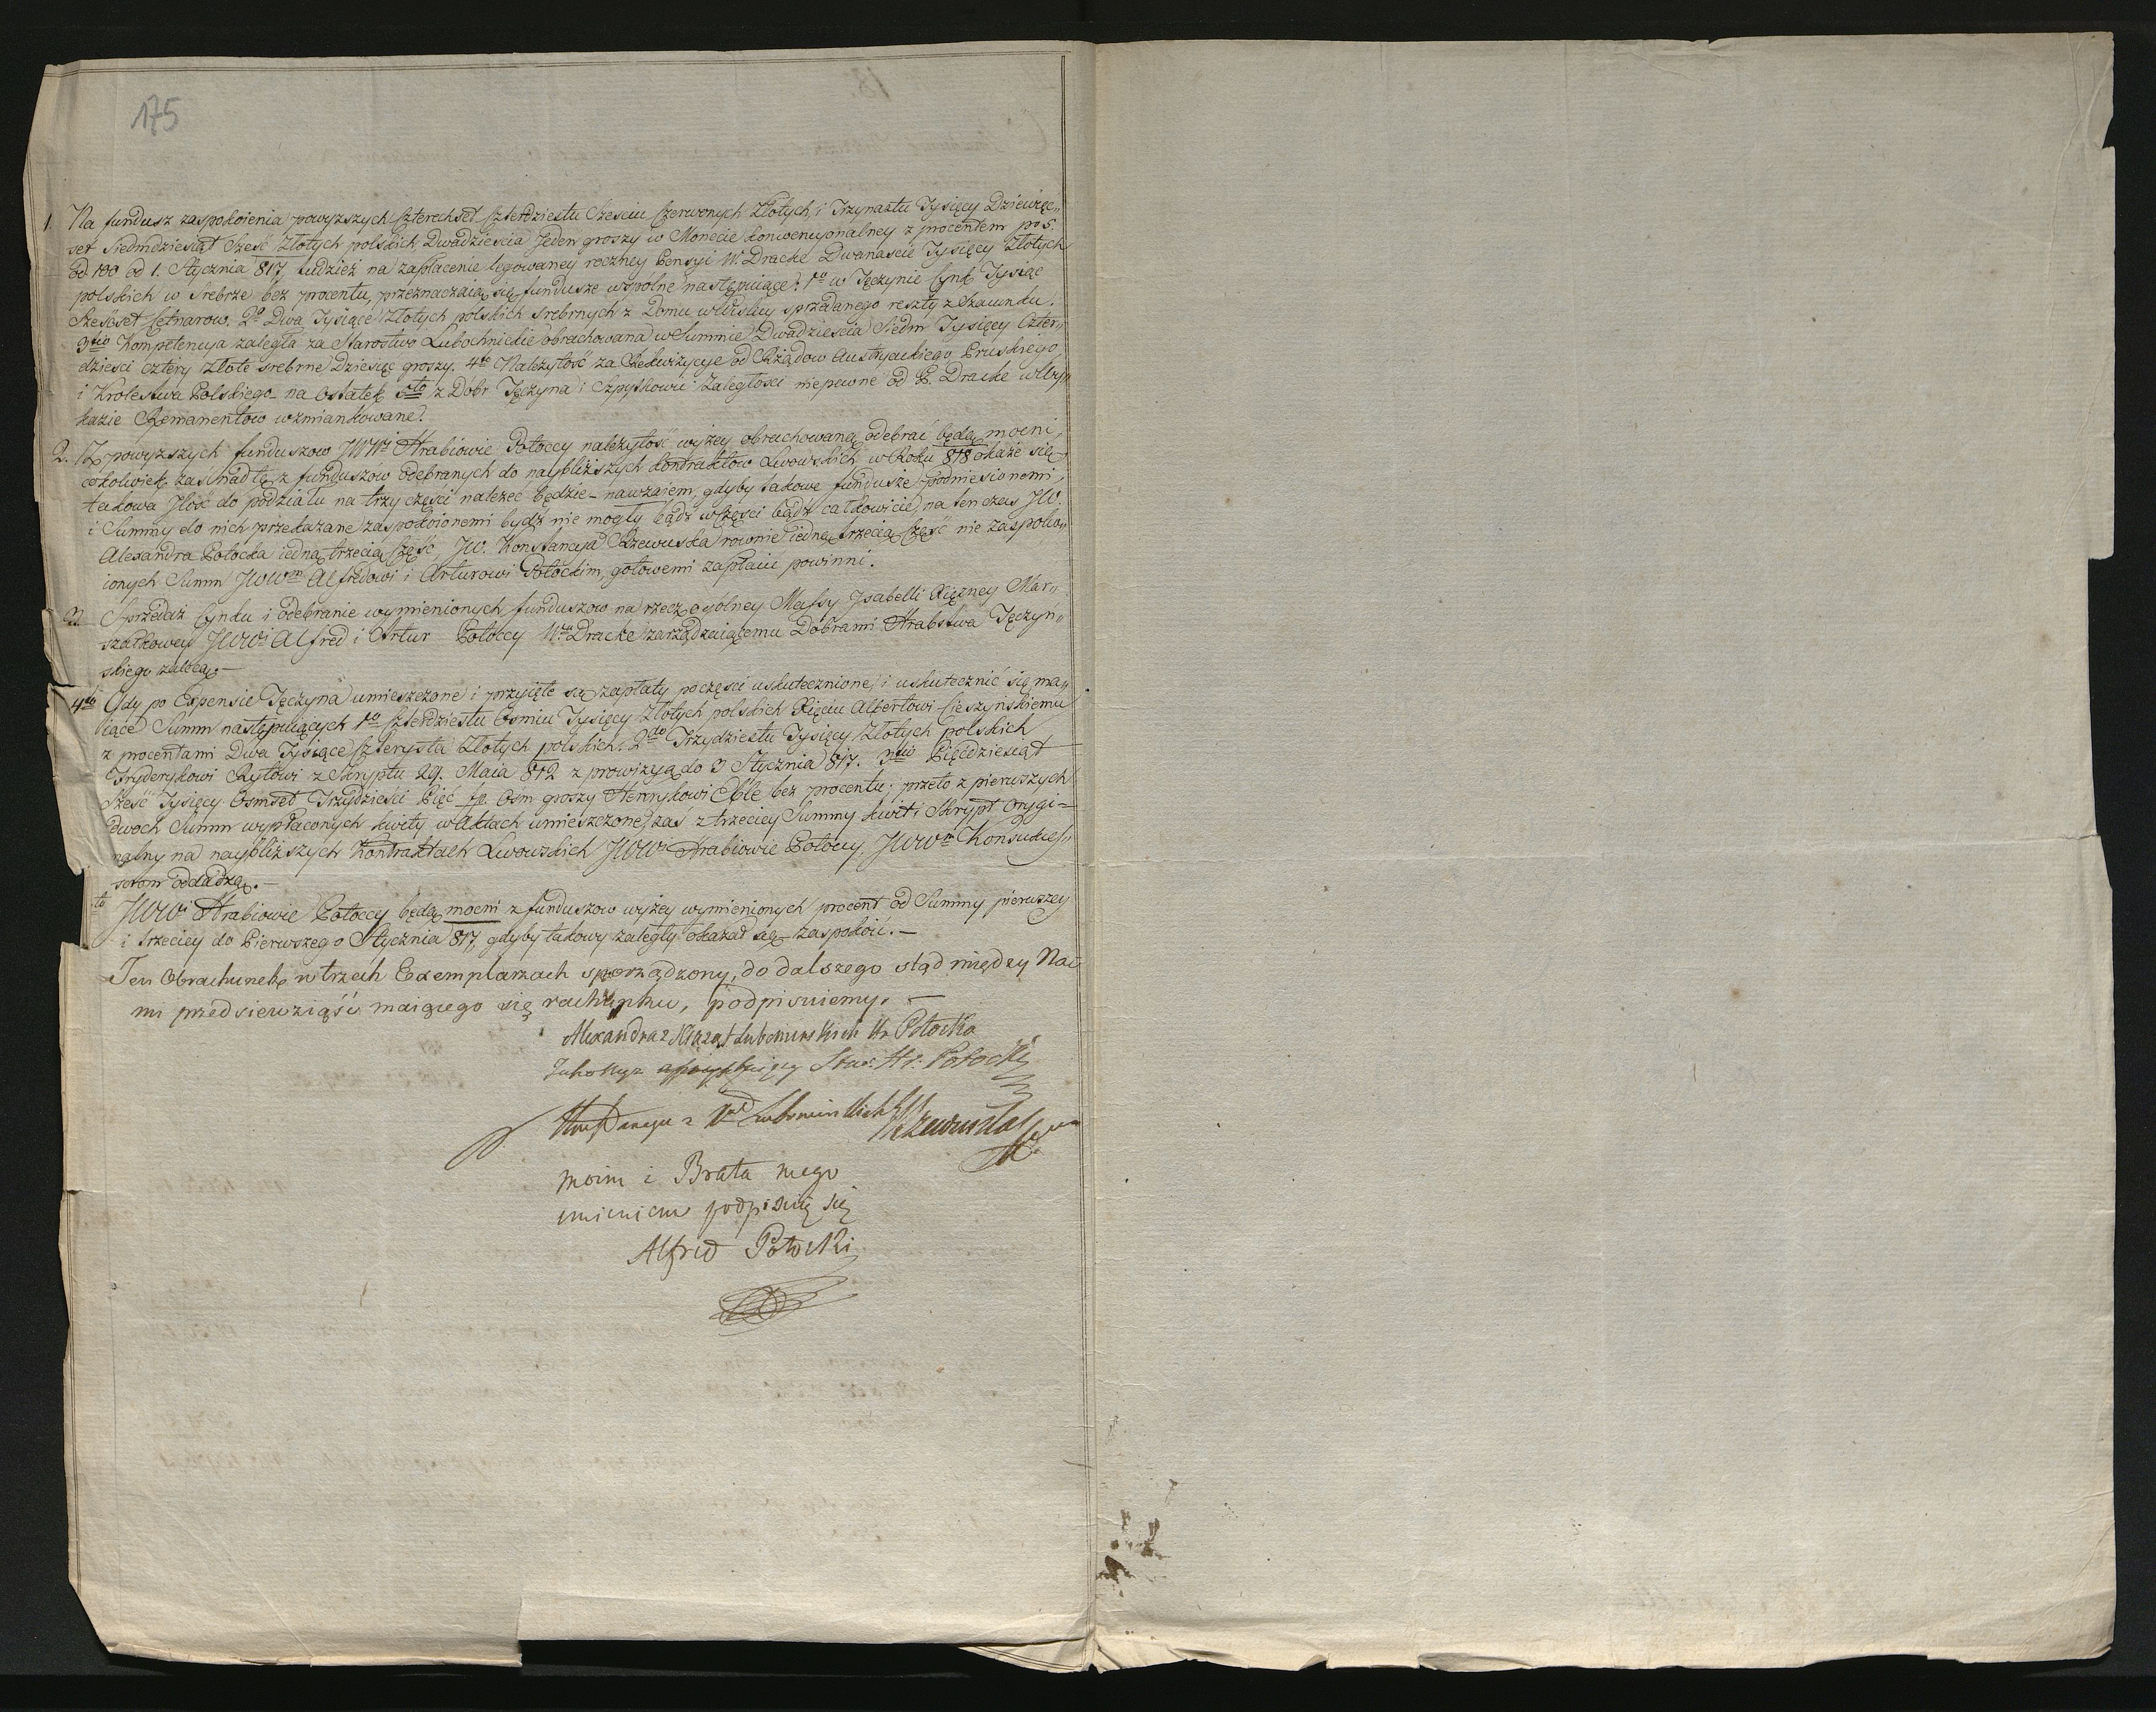 175
1. Na fundusz zaspokoienia powyższych Czterechset Czterdziestu Sześciu Czerwonych Złotych, i Trzynastu Tysięcy Dziewięć„
set Siedmdziesiąt Sześć Złotych polskich Dwadzieścia Jeden groszy w Monecie konwencyonalney z procentem po 5.
od 100 od 1. Stycznia 817, tudzież na zapłacenie legowaney roczney Pensyi W. Dracke Dwanaście Tysięcy Złotych
polskich w Srebrze bez procentu, przeznaczaią się fundusze wspólne następuiące: 1º w Tęczynie Cynk Tysiąc
Sześćset Cetnarow. 2º Dwa Tysiące Złotych polskich srebrnych z Domu w Wiśliczy sprzedanego reszty z Szacunku.
3tio Kompetencya zaległa za Starostwo Lubochnickie obrachowana w Summie Dwadzieścia Siedm Tysięcy Czter„
dzieści cztéry Złote srebrne Dziesięć groszy. 4to Należytość za Rekwizycye od Rządow Austryackiego Pruskiego,
i Krolestwa Polskiego na Ostatek 5to z Dobr Tęczyna i Szpytkowic Zaległosci niepewne od P. Dracke w Wy„
kazie Remanentow wzmiankowane.
2. Z powyższych funduszow JWWi Hrabiowie Potoccy należytość wyżey obrachowaną odebrać będą mocni,
cokolwiek zaś nad tę z funduszów odebranych do naybliższych kontraktów Lwowskich w Roku 818 okaże się
takowa Ilość do podziału na trzy części należeć będzie – nawzaiem, gdyby takowe fundusze podniesionemi,
i Summy do nich przekazane zaspokoionemi bydź nie mogły bądź w Części bądź całkowicie, na ten czas JW.
Alexandra Potocka iedną trzecią Część, JW. Konstancya Rzewuska rownie iedną trzecią Część nie zaspoko„
ionych Summ JWWm Alfredowi i Arturowi Potockim, gotowemi zapłacić powinni.
3. Sprzedaż Cynku i odebranie wymienionych funduszow na rzecz ogólney Massy Jsabelli Xiężney Mar„
szałkowey JWWi Alfred i Artur Potoccy Wu Dracke zarządzaiącemu Dobrami Hrabstwa Tęczyń„
skiego zalecą. –
4to Gdy po Expensie Tęczyna umieszczone i przyięte są zapłaty po części uskutecznione, i uskutecznić się ma„
iące Summ następuiących 1º Czterdziestu Osmiu Tysięcy Złotych polskich Xięciu Albertowi Cieszyńskiemu
z procentami Dwa Tysiące Czterysta Złotych polskich. 2do Trzydziestu Tysięcy Złotych polskich
Fryderykowi Rytowi z Skryptu 29. Maia 812 z prowizyą do 3 Stycznia 817. 3tio Pięćdziesiąt
Sześć Tysięcy Osmset Trzydzieści Pięć fp. Osm groszy Henrykowi Eble bez procentu; przeto z pierwszych
dwoch Summ wypłaconych kwity w Aktach umieszczone, zas z trzeciey Summy kwit i Skrypt orygi=
nalny na naybliższych Kontraktach Lwowskich JWWi Hrabiowie Potoccy JWWm Konsukces„
sorom oddadzą. –
to JWWi Hrabiowie Potoccy będą mocni z funduszow wyżey wymienionych procent od Summy pierwszey
i trzeciey do Pierwszego Stycznia 817, gdyby takowy zaległy okazał się zaspokoić. –
Ten Obrachunek w trzech Exemplarzach sporządzony, do dalszego stąd między Na„
mi przedsiewziąść maiącego się rachunku, podpisuiemy. –
Alexandra z Xiążąt Lubomirskich Hr. Potocka
Jako Mąż assystuiący Stan. Hr. Potocki
Konstancya z Xiąt Lubomirskich Rzewuska
moim i Brata mego
imieniem podpisuię się
Alfred Potocki